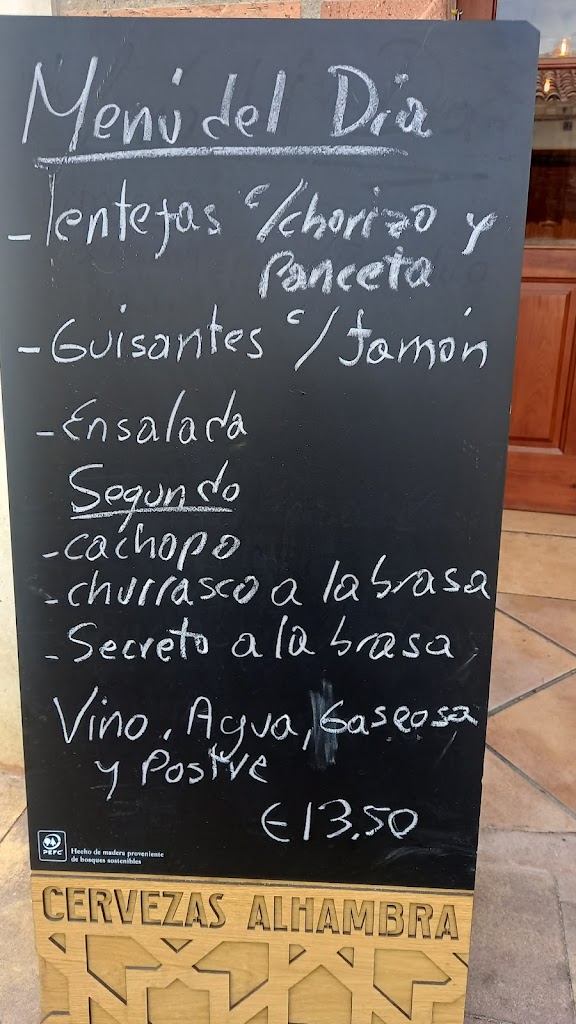 Menú del Dia
- lentejas c/chorizo y
Panceta
- Guisantes c/ Jamón
- Ensalada
Segundo
- cachopo
- churrasco a la brasa
- Secreto a la brasa
Vino, Agua, Gaseosa
y Postre
€13,50
PEFC
Hecho de madera proveniente
de bosques sostenibles
CERVEZAS ALHAMBRA